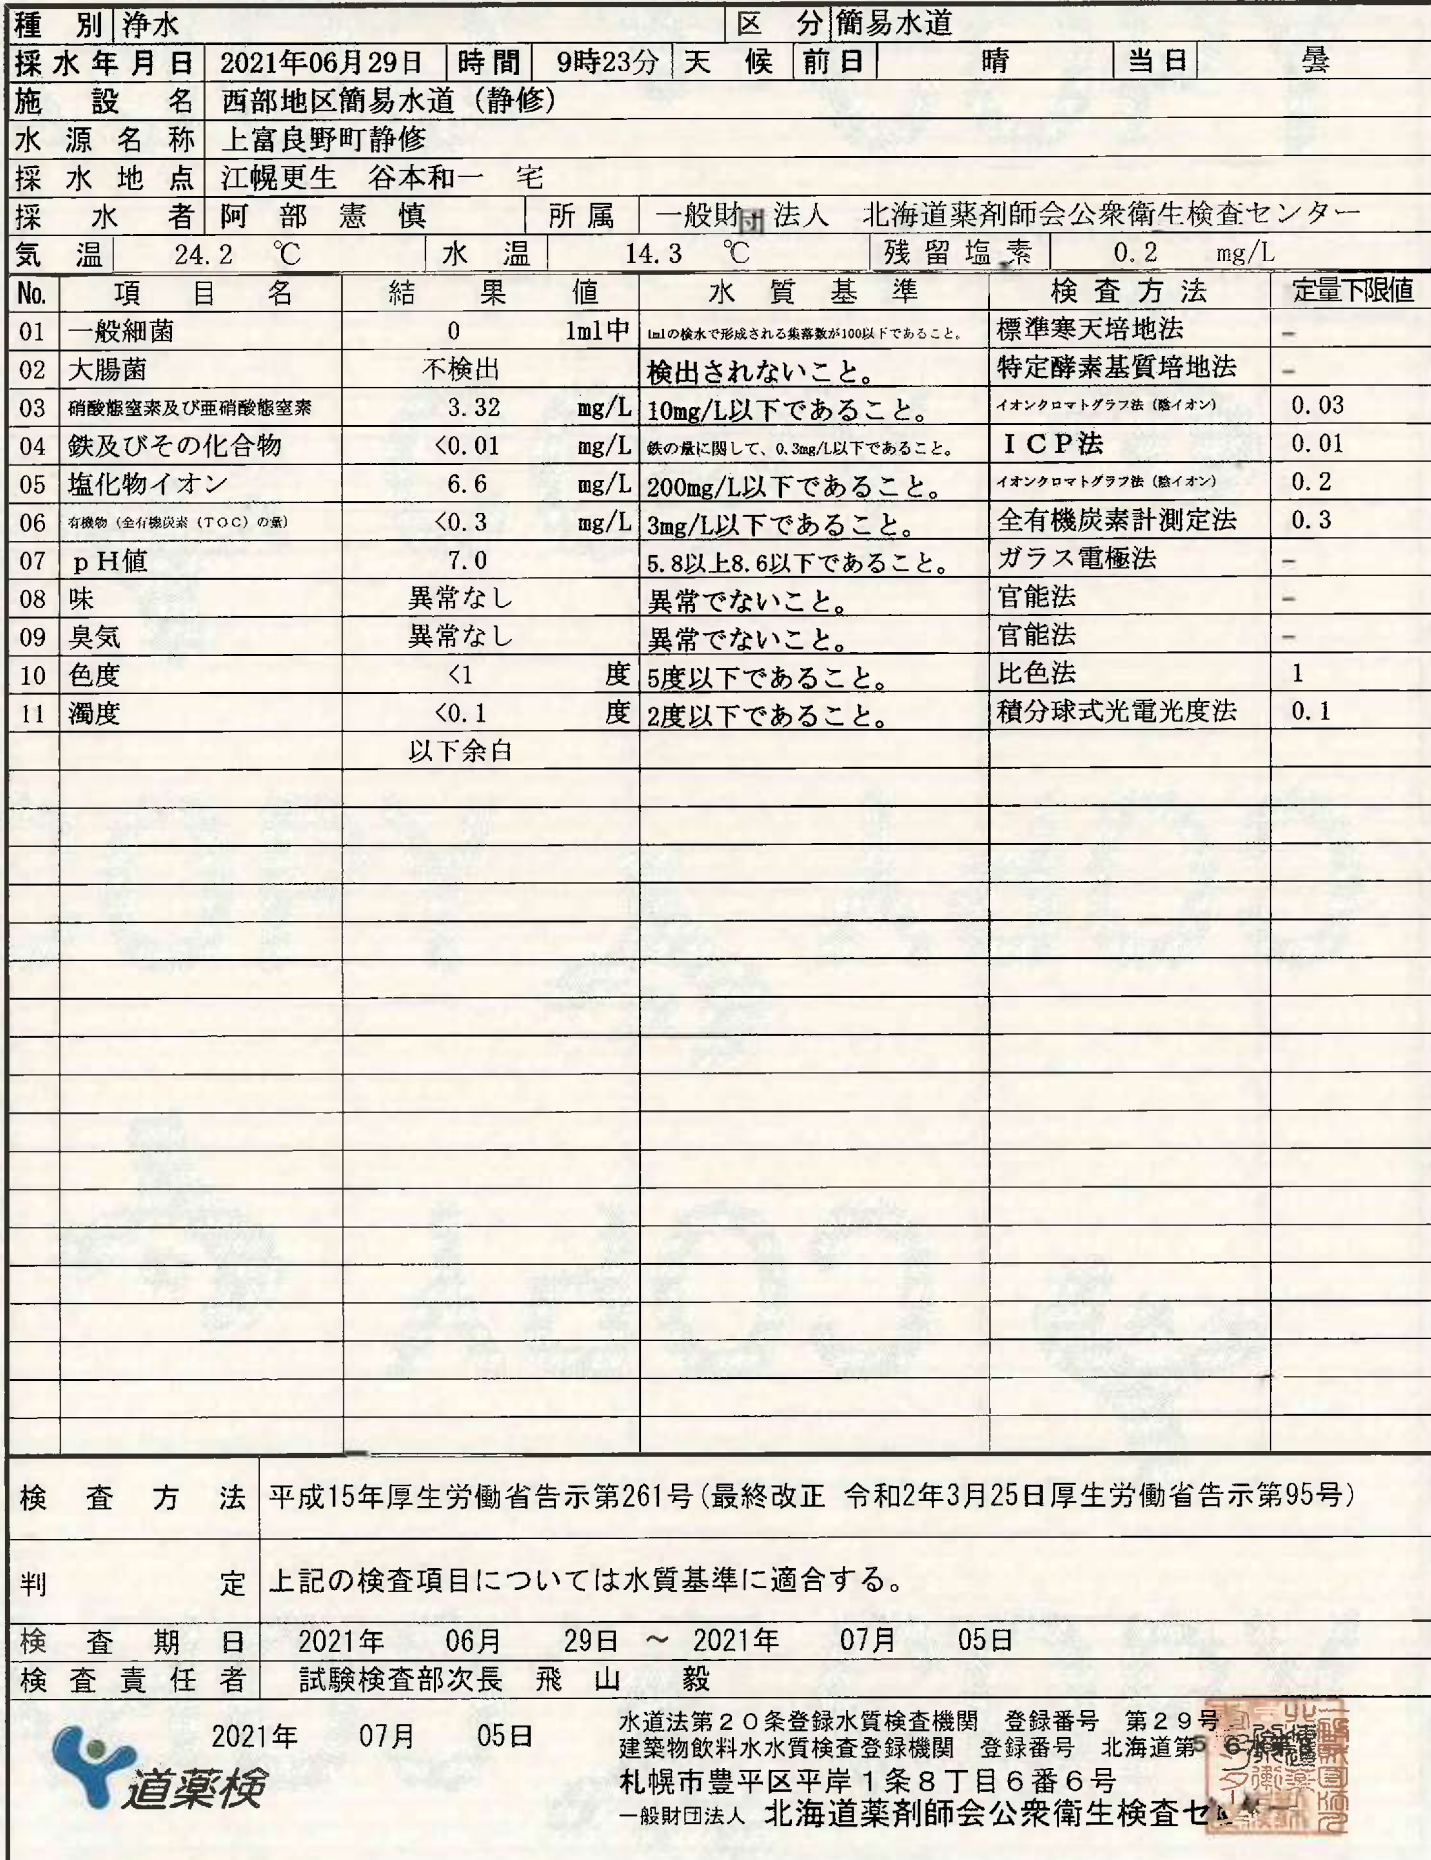 種 別 浄水 区 分 簡易水道
採水年月日 2021年06月29日 時間 9時23分 天 候 前日 晴 当日 曇
施 設 名 西部地区簡易水道（静修）
水 源 名 称 上富良野町静修
採 水 地 点 江幌更生 谷本和一 宅
採 水 者 阿 部 憲 慎 所属 一般財団法人 北海道薬剤師会公衆衛生検査センター
気 温 24.2 ℃ 水 温 14.3 ℃ 残留塩素 0.2 mg/L
No. 項 目 名 結 果 値 水 質 基 準 検 査 方 法 定量下限値
01 一般細菌 0 1ml中 1mlの検水で形成される集落数が100以下であること。 標準寒天培地法 -
02 大腸菌 不検出 検出されないこと。 特定酵素基質培地法 -
03 硝酸態窒素及び亜硝酸態窒素 3.32 mg/L 10mg/L以下であること。 イオンクロマトグラフ法（陰イオン） 0.03
04 鉄及びその化合物 <0.01 mg/L 鉄の量に関して、0.3mg/L以下であること。 ＩＣＰ法 0.01
05 塩化物イオン 6.6 mg/L 200mg/L以下であること。 イオンクロマトグラフ法（陰イオン） 0.2
06 有機物（全有機炭素（ＴＯＣ）の量） <0.3 mg/L 3mg/L以下であること。 全有機炭素計測定法 0.3
07 ｐＨ値 7.0 5.8以上8.6以下であること。 ガラス電極法 -
08 味 異常なし 異常でないこと。 官能法 -
09 臭気 異常なし 異常でないこと。 官能法 -
10 色度 <1 度 5度以下であること。 比色法 1
11 濁度 <0.1 度 2度以下であること。 積分球式光電光度法 0.1
以下余白
検 査 方 法 平成15年厚生労働省告示第261号(最終改正 令和2年3月25日厚生労働省告示第95号)
判 定 上記の検査項目については水質基準に適合する。
検 査 期 日 2021年 06月 29日 ～ 2021年 07月 05日
検 査 責 任 者 試験検査部次長 飛 山 毅
2021年 07月 05日
道薬検
水道法第２０条登録水質検査機関 登録番号 第２９号
建築物飲料水水質検査登録機関 登録番号 北海道第５６
札幌市豊平区平岸１条８丁目６番６号
一般財団法人 北海道薬剤師会公衆衛生検査セ